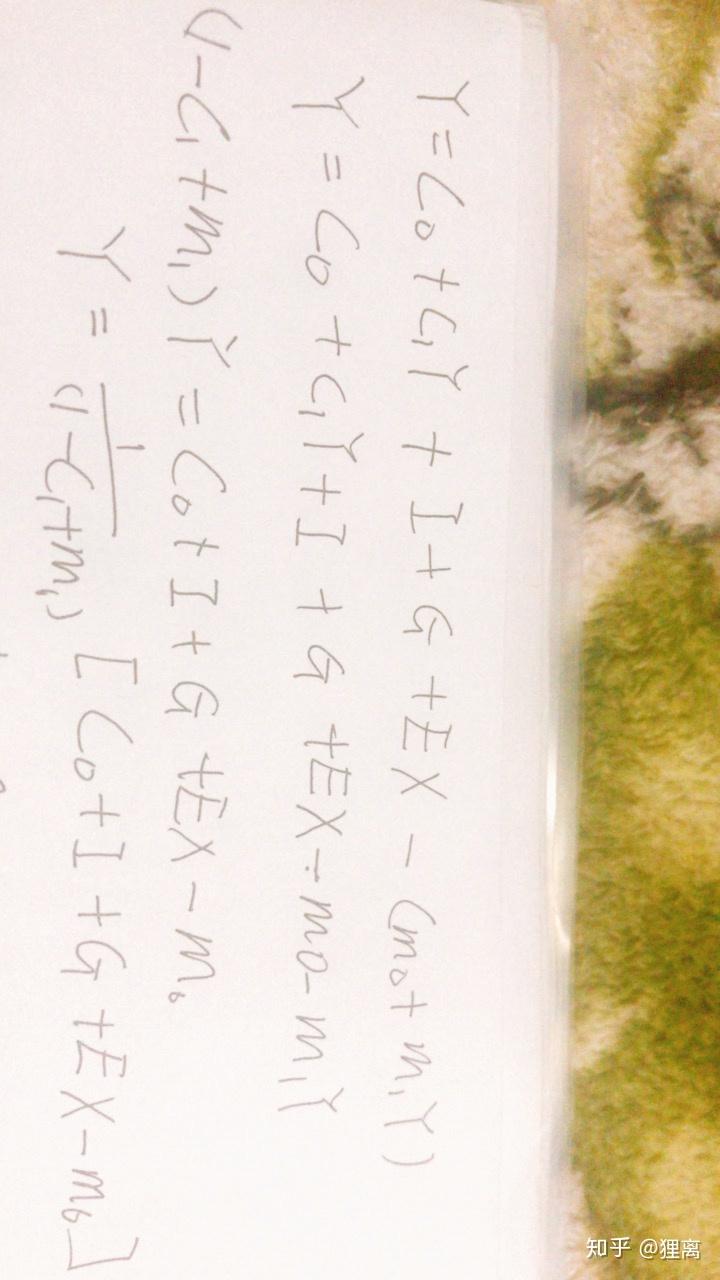 Y = C₀ + C₁Y + I + G + EX - (m₀ + m₁Y)
Y = C₀ + C₁Y + I + G + EX - m₀ - m₁Y
(1 - C₁ + m₁) Y = C₀ + I + G + EX - m₀
Y = 1/(1 - C₁ + m₁) [C₀ + I + G + EX - m₀]
知乎 @狸离